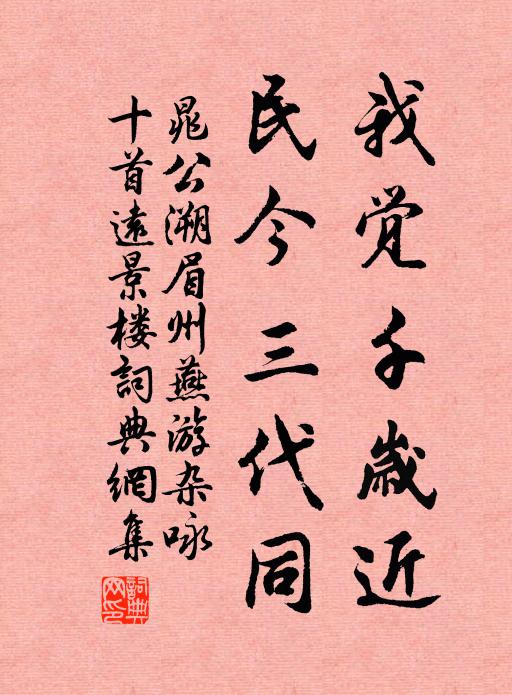 我觉千歲近
民今三代同
晁公溯眉州燕游杂咏
十首遠景楼詞典網集
詞典网印